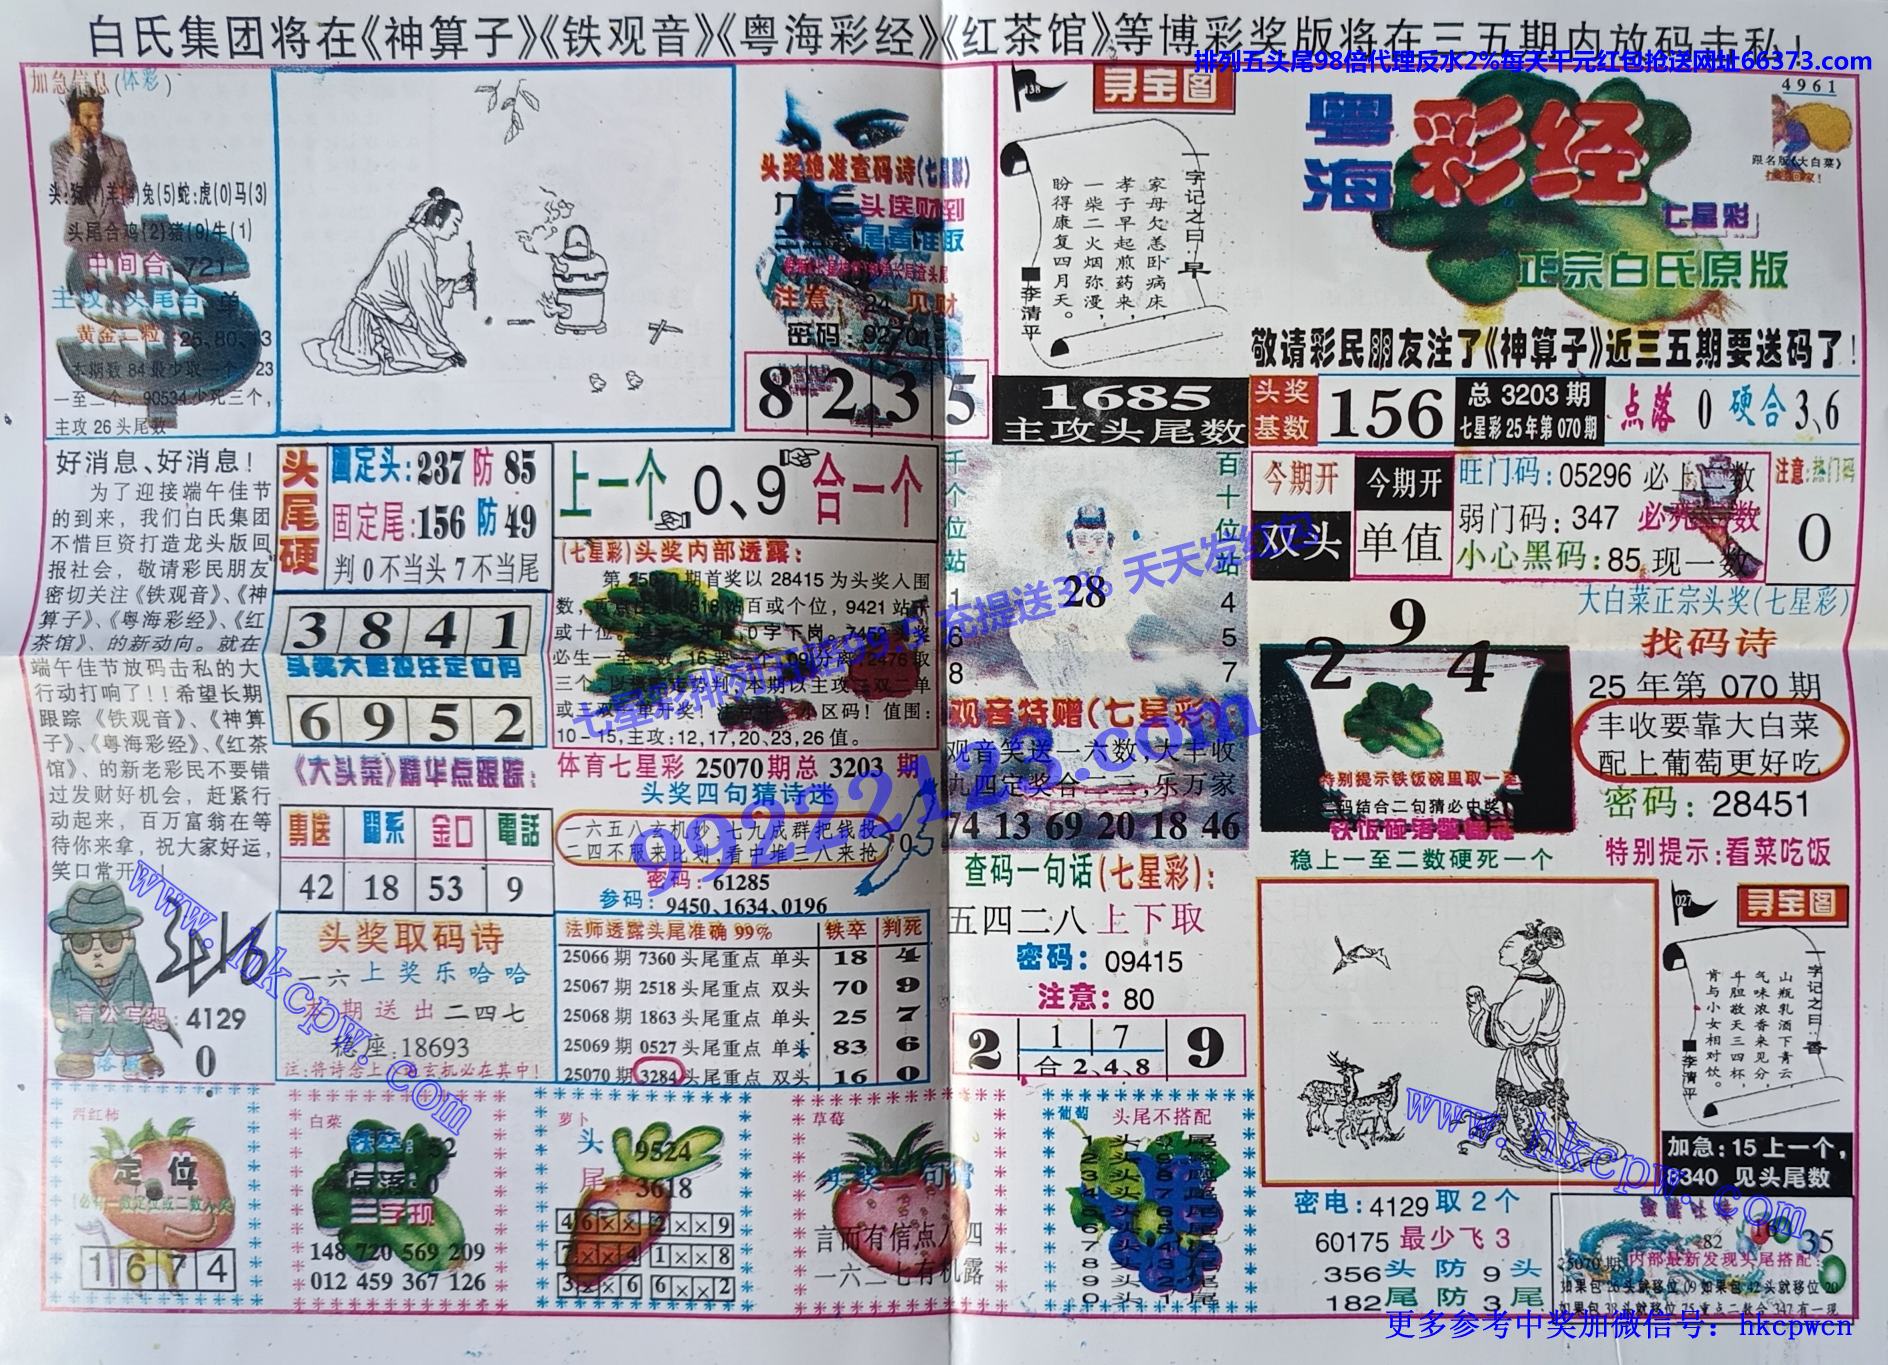 白氏集团将在《神算子》《铁观音》《粤海彩经》《红茶馆》等博彩奖版将在三五期内放码击私!
排列五头尾98倍代理反水2%每天千元红包抢送网址66373.com
加急信息(体彩)
头尾合鸡(2)猪(9)牛(1)
中间合:721
主攻:头尾合单
黄金二粒:26、80、13
主攻26头尾数
头奖绝准查码诗(七星彩)
注意:24见财
密码:92701
8 2 3 5
138
寻宝图
一字记之曰:早
家母欠恙卧病床,
孝子早起煎药来,
一柴二火烟弥漫,
盼得康复四月天。
■李清平
1685
主攻头尾数
4961
粤海彩经
七星彩
正宗白氏原版
跟名版《大白菜》
敬请彩民朋友注了《神算子》近三五期要送码了!
头奖基数
156
总3203期
七星彩25年第070期
点落 0 硬合3、6
好消息、好消息!
为了迎接端午佳节
的到来,我们白氏集团
不惜巨资打造龙头版回
报社会,敬请彩民朋友
密切关注《铁观音》、《神
算子》、《粤海彩经》、《红
茶馆》、的新动向。就在
端午佳节放码击私的大
行动打响了!!希望长期
跟踪《铁观音》、《神算
子》、《粤海彩经》、《红茶
馆》、的新老彩民不要错
过发财好机会,赶紧行
动起来,百万富翁在等
待你来拿,祝大家好运,
笑口常开
头尾硬
固定头:237防85
固定尾:156防49
判0不当头7不当尾
3 8 4 1
头奖大胆投注定位码
6 9 5 2
上一个 0、9 合一个
(七星彩)头奖内部透露:
第25070期首奖以28415为头奖入围
10-15,主攻:12,17,20、23,26值。
体育七星彩25070期总3203期
头奖四句猜诗迷
一六五八玄机妙,七九成群把钱投
二四不服来比划,看中堆三八来抢
密码:61285
参码:9450、1634、0196
千个位站
1
6
8
28
百十位站
4
5
7
观音特赠(七星彩):
观音笑送一六数,大丰收
九四定奖合二三,乐万家
74 13 69 20 18 46
今期开 双头
今期开 单值
旺门码:05296 必上一数
弱门码:347 必死一数
小心黑码:85 现一数
注意:热门码
0
大白菜正宗头奖(七星彩)
找码诗
25年第070期
丰收要靠大白菜
配上葡萄更好吃
密码:28451
特别提示:看菜吃饭
2 9 4
特别提示铁饭碗里取一至
码结合二句猜必中奖
稳上一至二数硬死一个
《大头菜》精华点跟踪:
专送 關系 金口 電話
42 18 53 9
4129
0
头奖取码诗
一六上奖乐哈哈
本期送出二四七
稳座:18693
法师透露头尾准确99% 铁卒 判死
25066期 7360 头尾重点 单头 18 4
25067期 2518 头尾重点 双头 70 9
25068期 1863 头尾重点 单头 25 7
25069期 0527 头尾重点 单头 83 6
25070期 3284 头尾重点 双头 16 0
查码一句话(七星彩):
五四二八上下取
密码:09415
注意:80
2 1 7 9
合2、4、8
027
寻宝图
一字记之曰:香
山瓶乳酒下青云
气味浓香来见分,
斗胆敌天三四杯,
肯与小女相对饮。
■李清平
加急:15上一个,
0340 见头尾数
西红柿
定位
1 6 7 4
白菜
铁卒:52
点落:0
三字现
148 720 569 209
012 459 367 126
萝卜
头 9524
尾 3618
4 6 × × 2 × × 9
7 × × 4 1 × × 8
3 × × 6 6 × × 2
草莓
头奖一句猜
言而有信点八四
一六二七有机露
葡萄
头尾不搭配
密电:4129取2个
60175最少飞3
356头防9头
182尾防3尾
82 16 35
25070期 内部最新发现头尾搭配:
七星彩排列五赔99.5 充提送3% 天天发红包
99222123.com
www.hkcpw.com
www.hkcpw.com
更多参考中奖加微信号:hkcpwcn